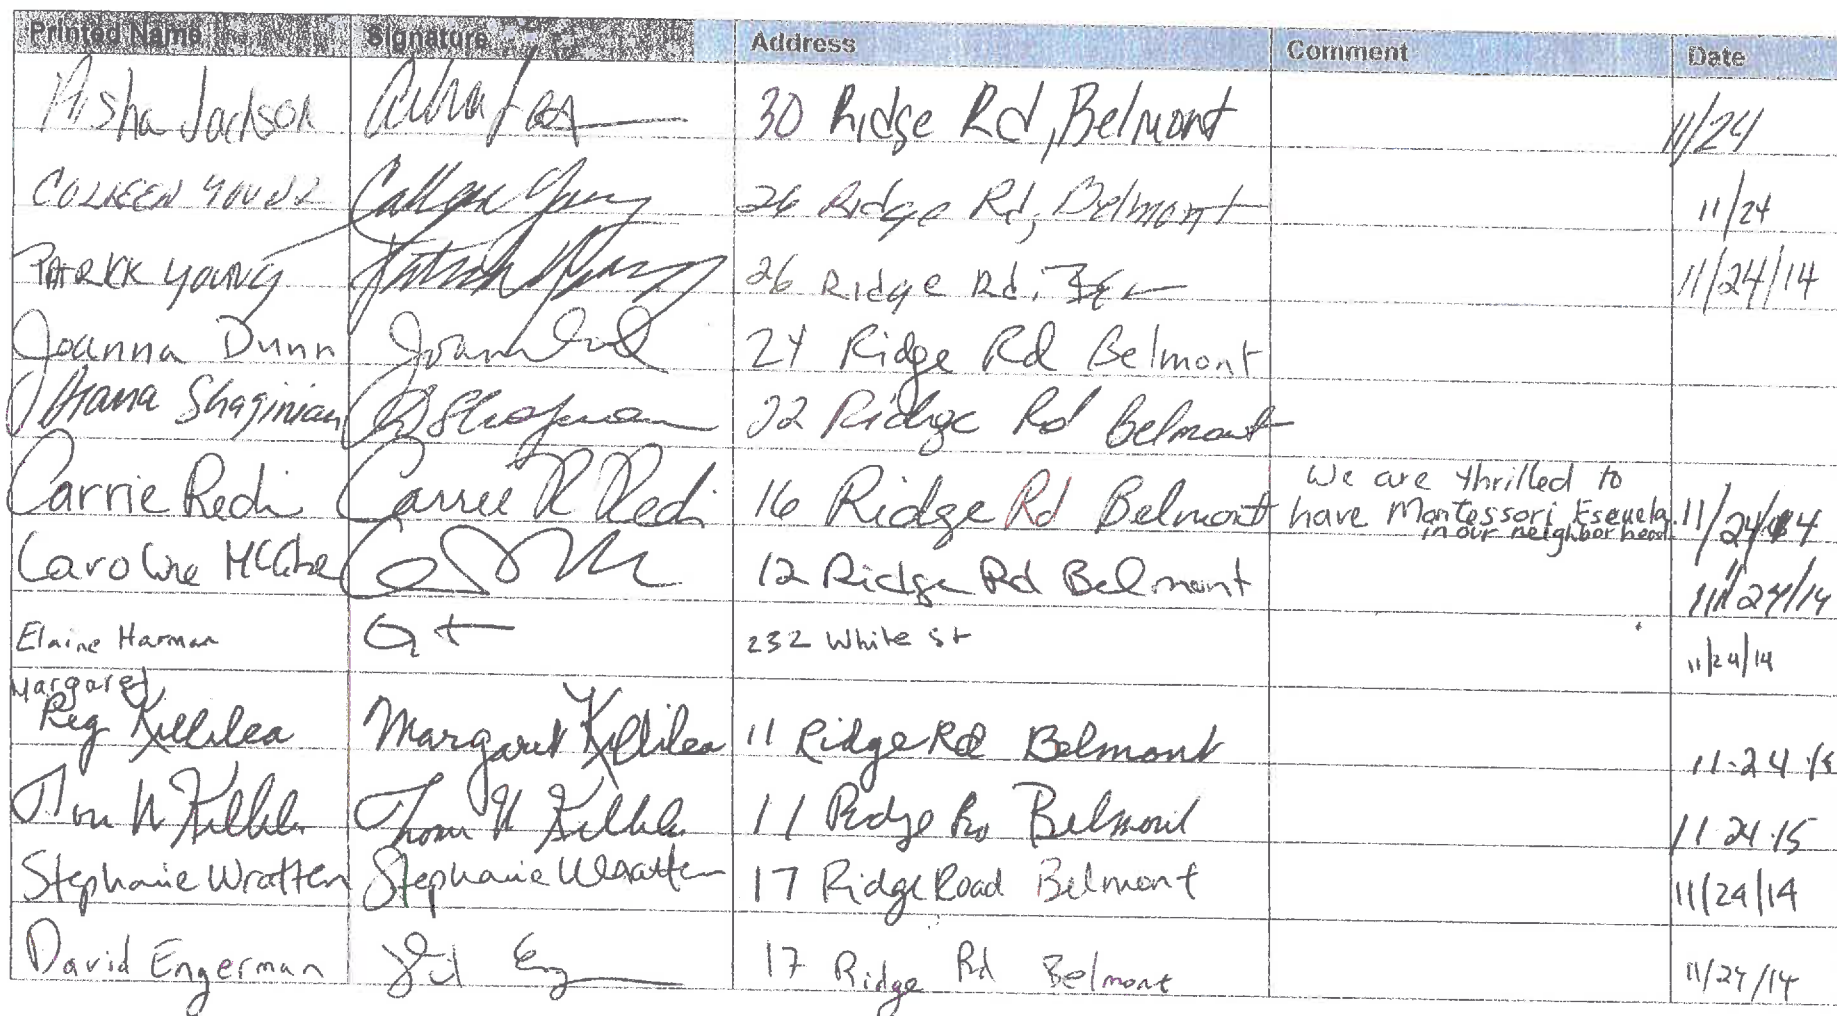 Printed Name Signature Address Comment Date
Aisha Jackson 30 Ridge Rd, Belmont 11/24
COLLEEN YOUNG Colleen Young 26 Ridge Rd, Belmont 11/24
PATRICK YOUNG Patrick Young 26 Ridge Rd, 11/24/14
Joanna Dunn 24 Ridge Rd Belmont
Shaginian 22 Ridge Rd Belmont
Carrie Redi Carrie R Redi 16 Ridge Rd Belmont We are thrilled to
have Montessori Escuela
in our neighborhood. 11/24/14
Caroline McCabe 12 Ridge Rd Belmont 11/24/14
Elaine Harman 232 White St 11/24/14
Margaret
Peg Killilea Margaret Killilea 11 Ridge Rd Belmont 11.24.15
Killilea Killilea 11 Ridge Rd Belmont 11.24.15
Stephanie Wratten Stephanie Wratten 17 Ridge Road Belmont 11/24/14
David Engerman 17 Ridge Rd Belmont 11/24/14